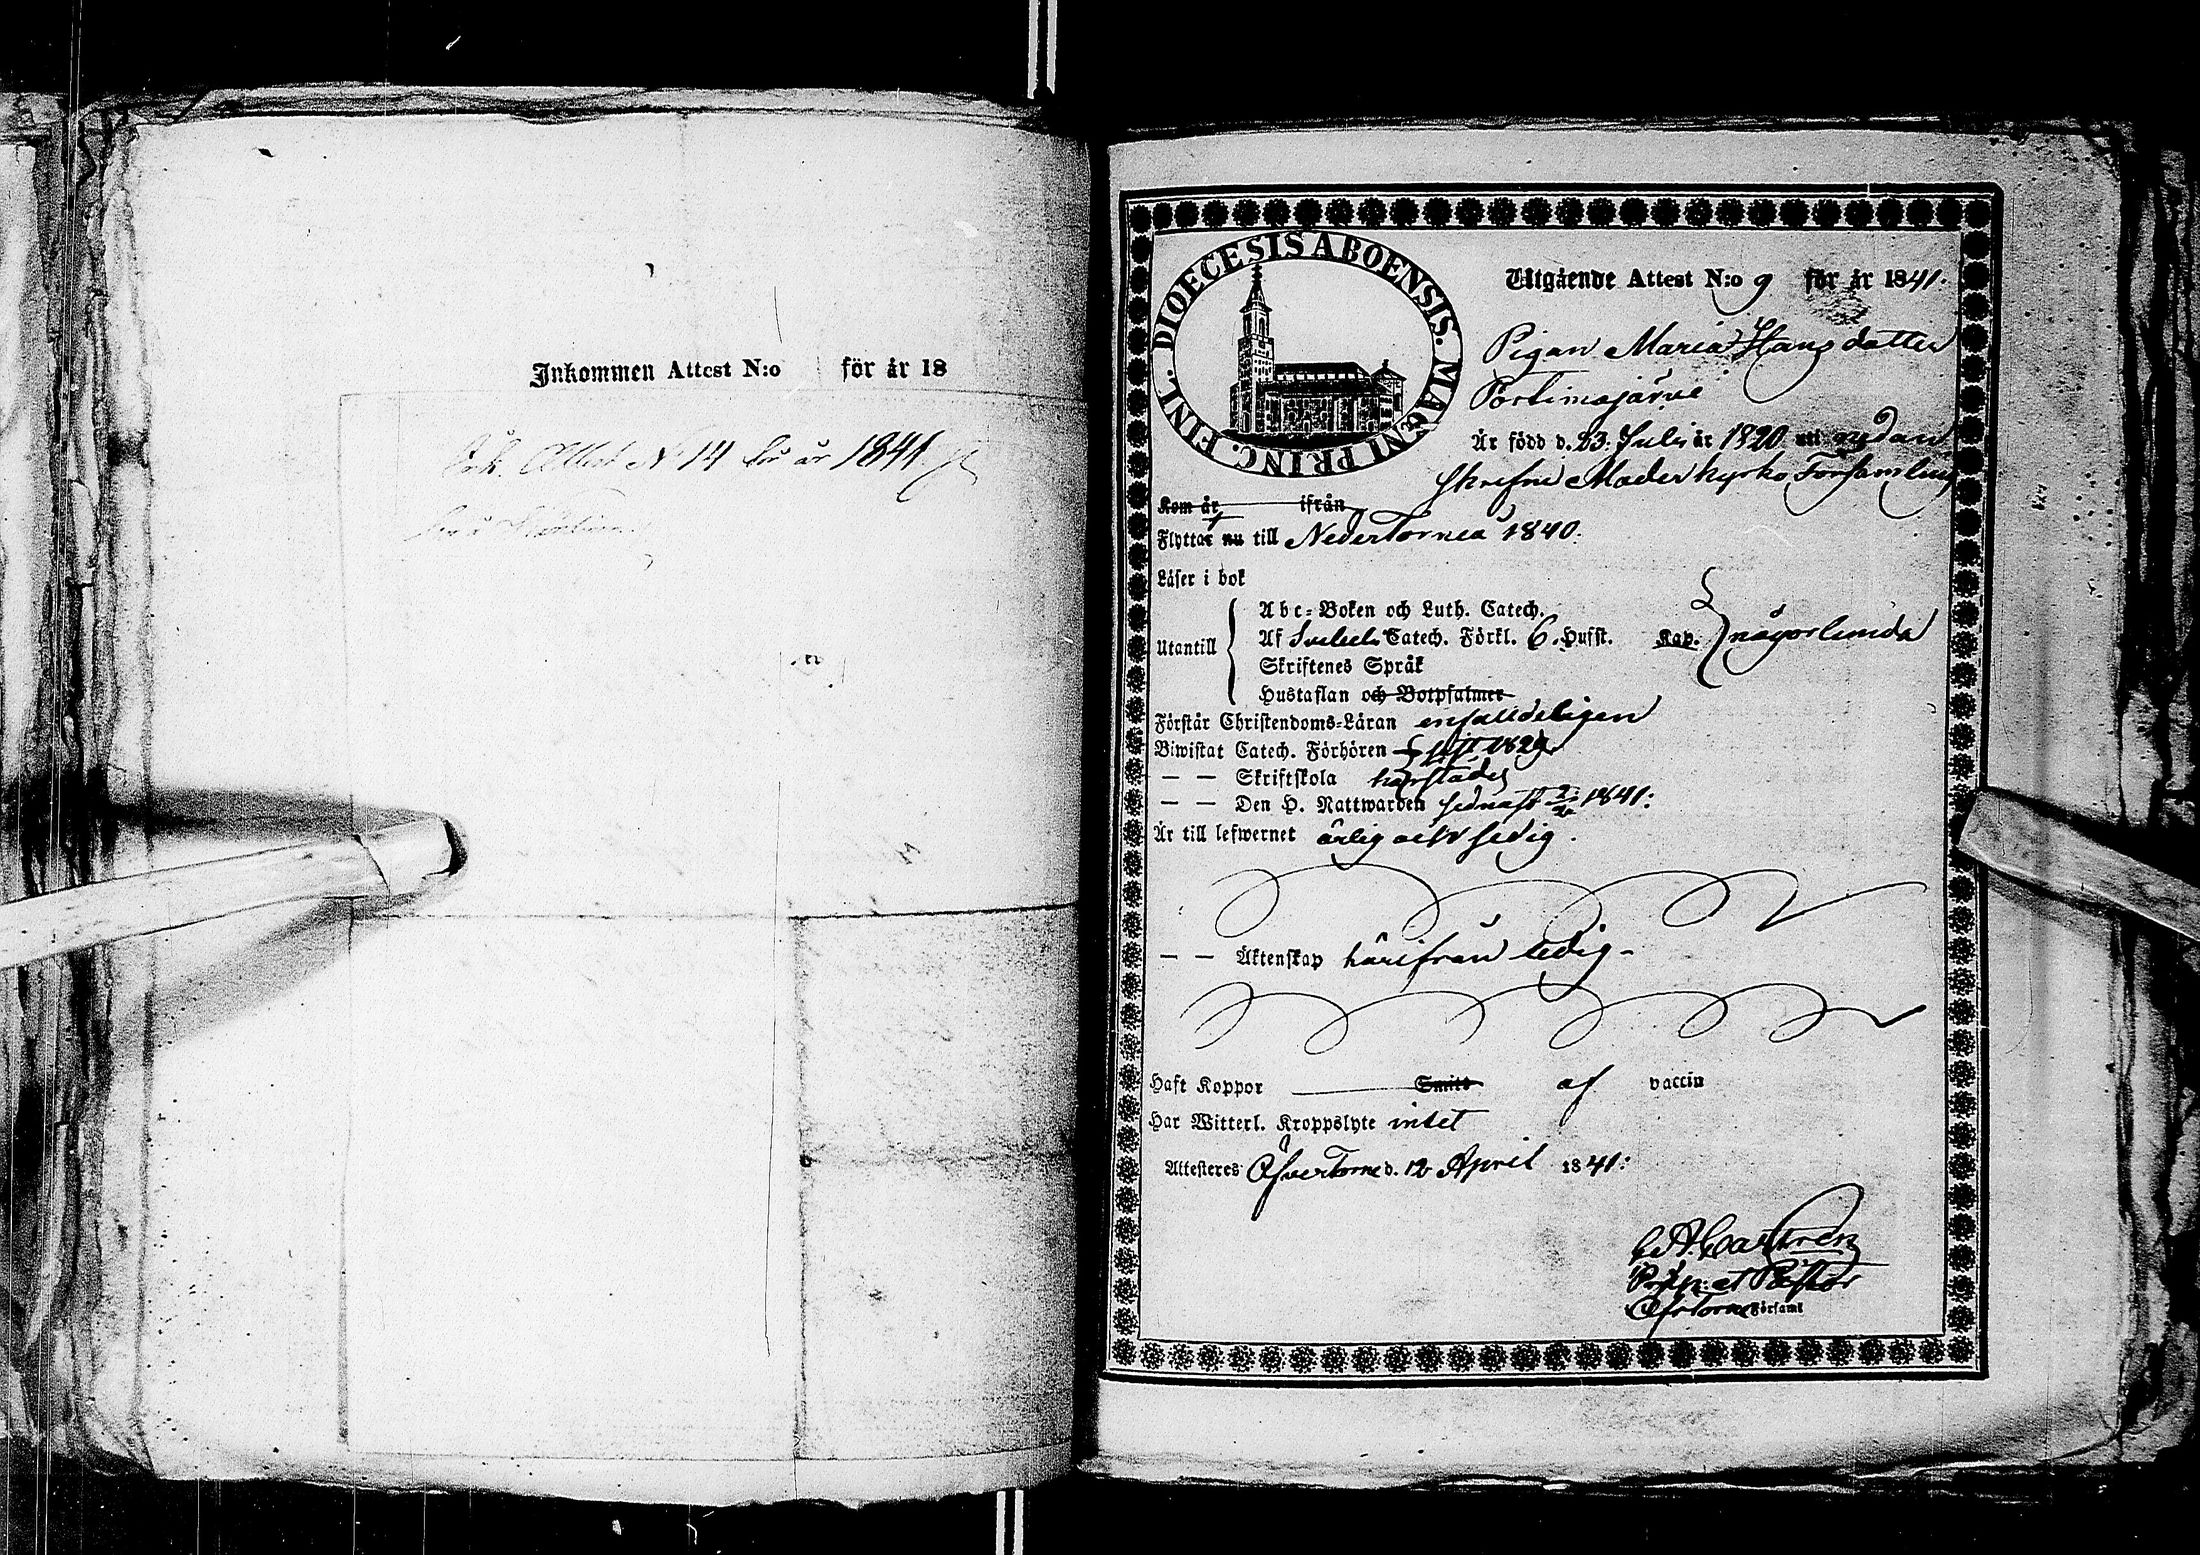 Inkommen Attest N:o för år 18
Ink. Attest N 14 för år 1841
DIOECESIS ABOENSIS. MAGNI PRINC. FINL.
Utgående Attest N:o 9 för år 1841.
Pigan Maria Hansdotter
Portimojärvi
Är född d. 23. Juli år 1820 uti nedan
skrefne Moderkyrko Församling
Kom år ifrån
Flyttar nu till NederTorneå 1840.
Läser i bok
Abc-Boken och Luth. Catech.
Utantill Af Svebeli Catech. Förkl. 6. Hufst. Kap. någorlunda
Skriftenes Språk
Hustaflan och Botpsalmer
Förstår Christendoms-Läran enfaldeligen
Biwistat Catech. Förhören
— — Skriftskola härstädes
— — Den H. Nattwarden sednast 1841:
Är till lefwernet ärlig och sedig.
— — Äktenskap härifrån ledig -
Haft Koppor Smitt af vaccin
Har Witterl. Kroppslyte intet
Attesteres ÖfverTorne d. 12 April 1841:
Castrén
Præp: et Pastor
ÖfrTorne Församl